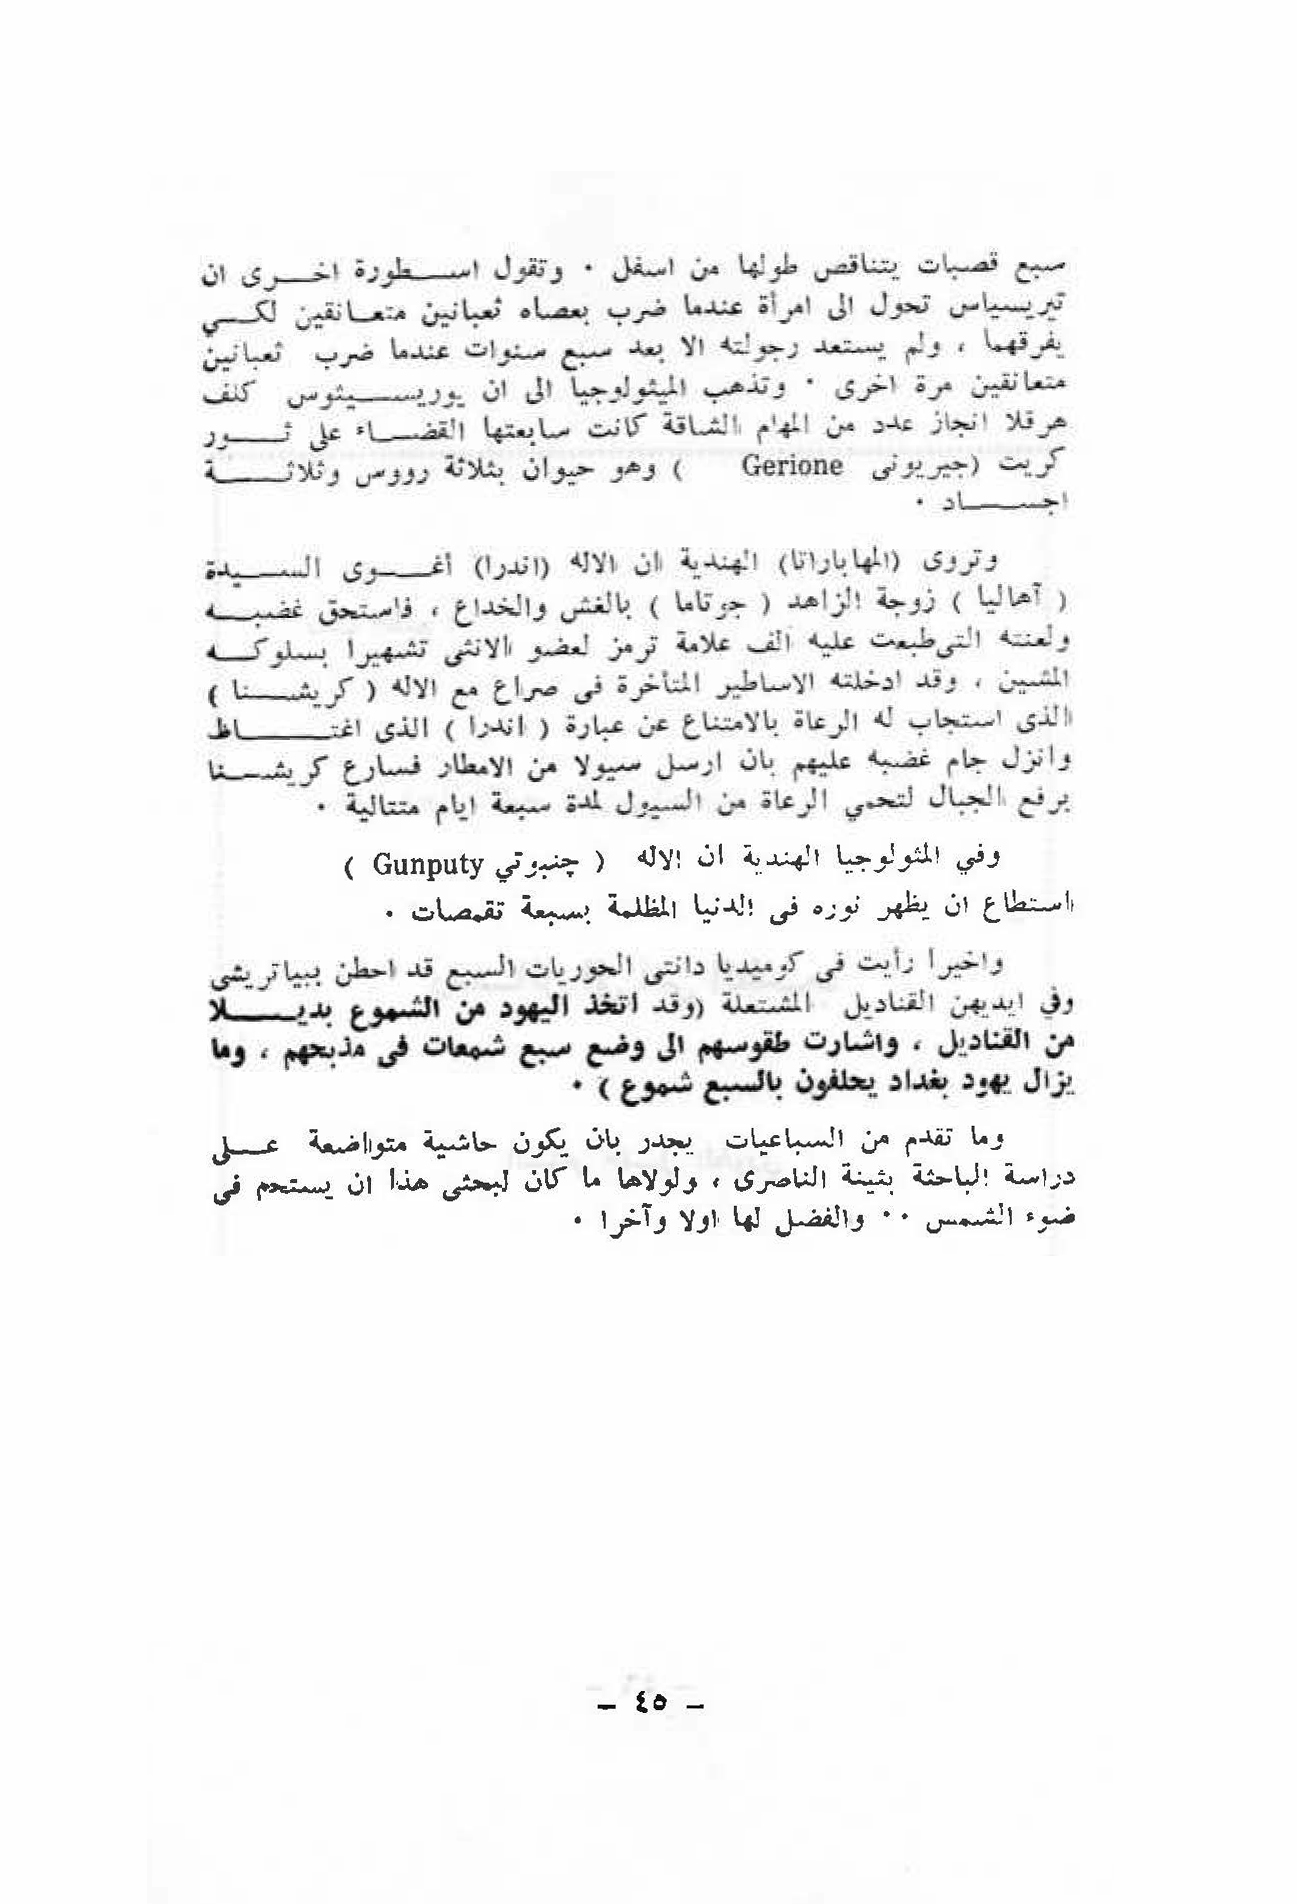 سبع قصبات يتناقص طولها من اسفل . وتقول اسطورة اخرى ان
تيريسياس تحول الى امرأة عندما ضرب بعصاه ثعبانين متعانقين لكي
يفرقهما ، ولم يستعد رجولته الا بعد سبع سنوات عندما ضرب ثعبانين
متعانقين مرة اخرى . وتذهب الميثولوجيا الى ان يوريسيثوس كلف
هرقلا انجاز عدد من المهام الشاقة كانت سابعتها القضاء على ثور
كريت (جيريونى Gerione ) وهو حيوان بثلاثة رووس وثلاثة
اجساد .
وتروى (المهاباراتا) الهندية ان الاله (اندرا) أغوى السيدة
( آهاليا ) زوجة الزاهد ( جوتاما ) بالغش والخداع ، فاستحق غضبه
ولعنته التى طبعت عليه الف علامة ترمز لعضو الانثى تشهيرا بسلوكه
المشين ، وقد ادخلته الاساطير المتأخرة فى صراع مع الاله ( كريشنا )
الذى استجاب له الرعاة بالامتناع عن عبارة ( اندرا ) الذى اغتاظ
وانزل جام غضبه عليهم بان ارسل سيولا من الامطار فسارع كريشنا
برفع الجبال لتحمي الرعاة من السيول لمدة سبعة ايام متتالية .
وفي المثولوجيا الهندية ان الاله ( چنبوتي Gunputy )
استطاع ان يظهر نوره فى الدنيا المظلمة بسبعة تقمصات .
واخيرا رأيت فى كوميديا دانتى الحوريات السبع قد احطن ببياتريشى
وفي ايديهن القناديل المشتعلة (وقد اتخذ اليهود من الشموع بديلا
من القناديل ، واشارت طقوسهم الى وضع سبع شمعات فى مذبحهم ، وما
يزال يهود بغداد يحلفون بالسبع شموع ) .
وما تقدم من السباعيات يجدر بان يكون حاشية متواضعة على
دراسة الباحثة بثينة الناصرى ، ولولاها ما كان لبحثى هذا ان يستحم فى
ضوء الشمس .. والفضل لها اولا وآخرا .
- ٤٥ -